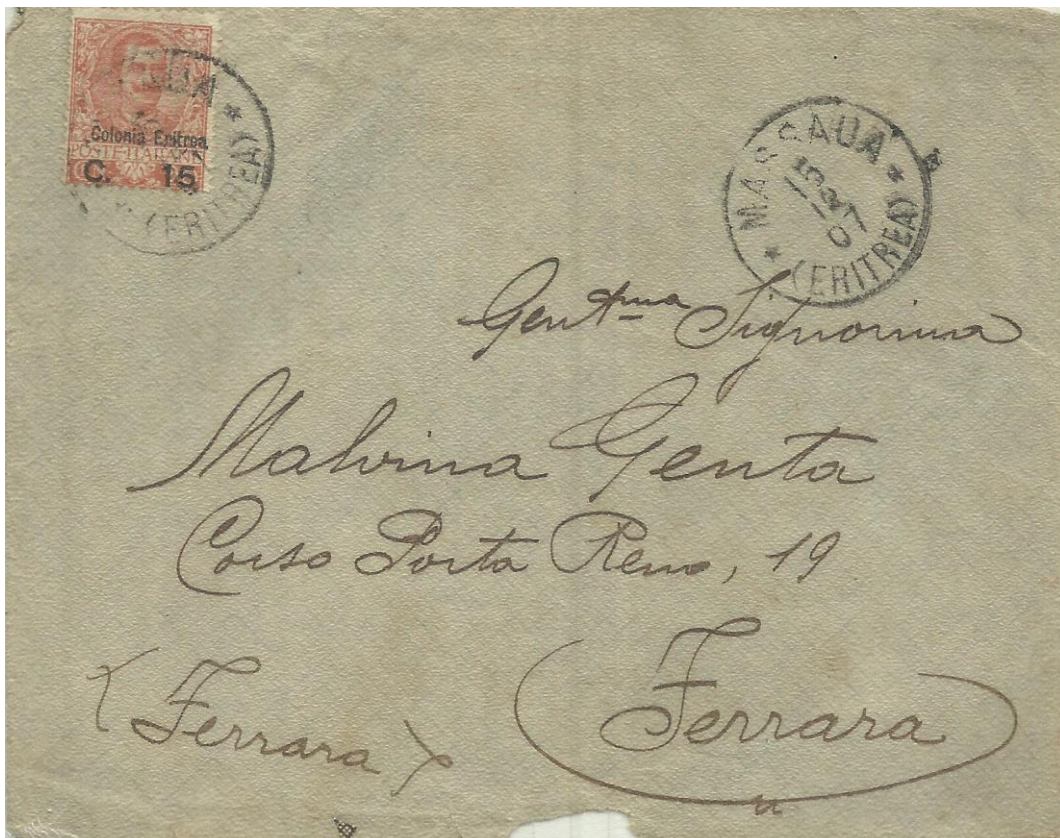 Colonia Eritrea
POSTE ITALIANE
C. 15
(ERITREA)
MASSAUA
15
07
(ERITREA)
Gentma Signorina
Malvina Genta
Corso Porta Reno, 19
Ferrara
(Ferrara)